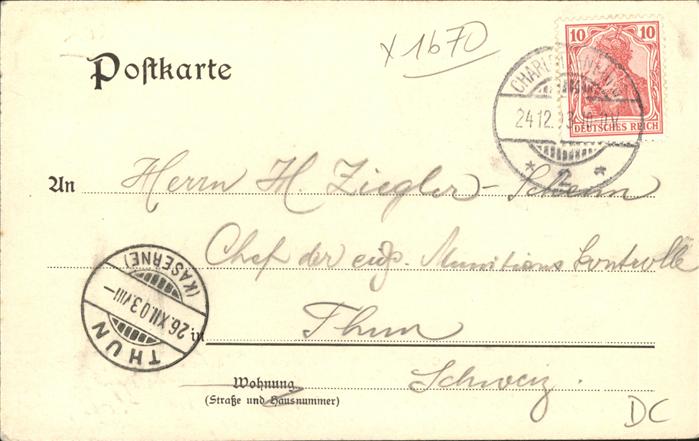 x 1670
Postkarte
10 10
DEUTSCHES REICH
24.12.03
* 2 *
An Herrn H. Ziegler-
Chef der eidg. Munitions Controlle
THUN
(KASERNE)
26.XII.03.VIII-
in Thun
Wohnung
(Straße und Hausnummer)
Schweiz.
DC